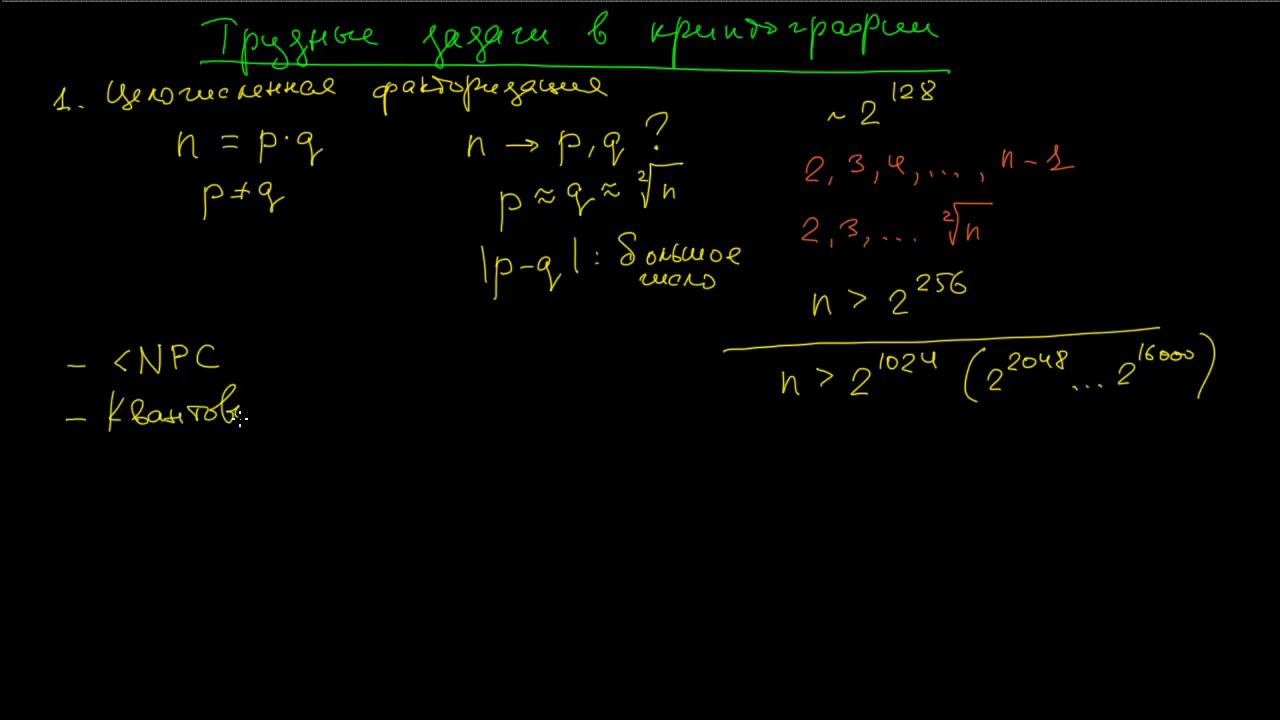 Трудные задачи в криптографии
1. Целочисленная факторизация
n = p·q
p ≠ q
n → p, q ?
p ≈ q ≈ ²√n
|p-q| : большое
число
~ 2^128
2, 3, 4, ..., n-1
2, 3, ... ²√n
n > 2^256
n > 2^1024 (2^2048 ... 2^16000)
- <NPC
- Квантов